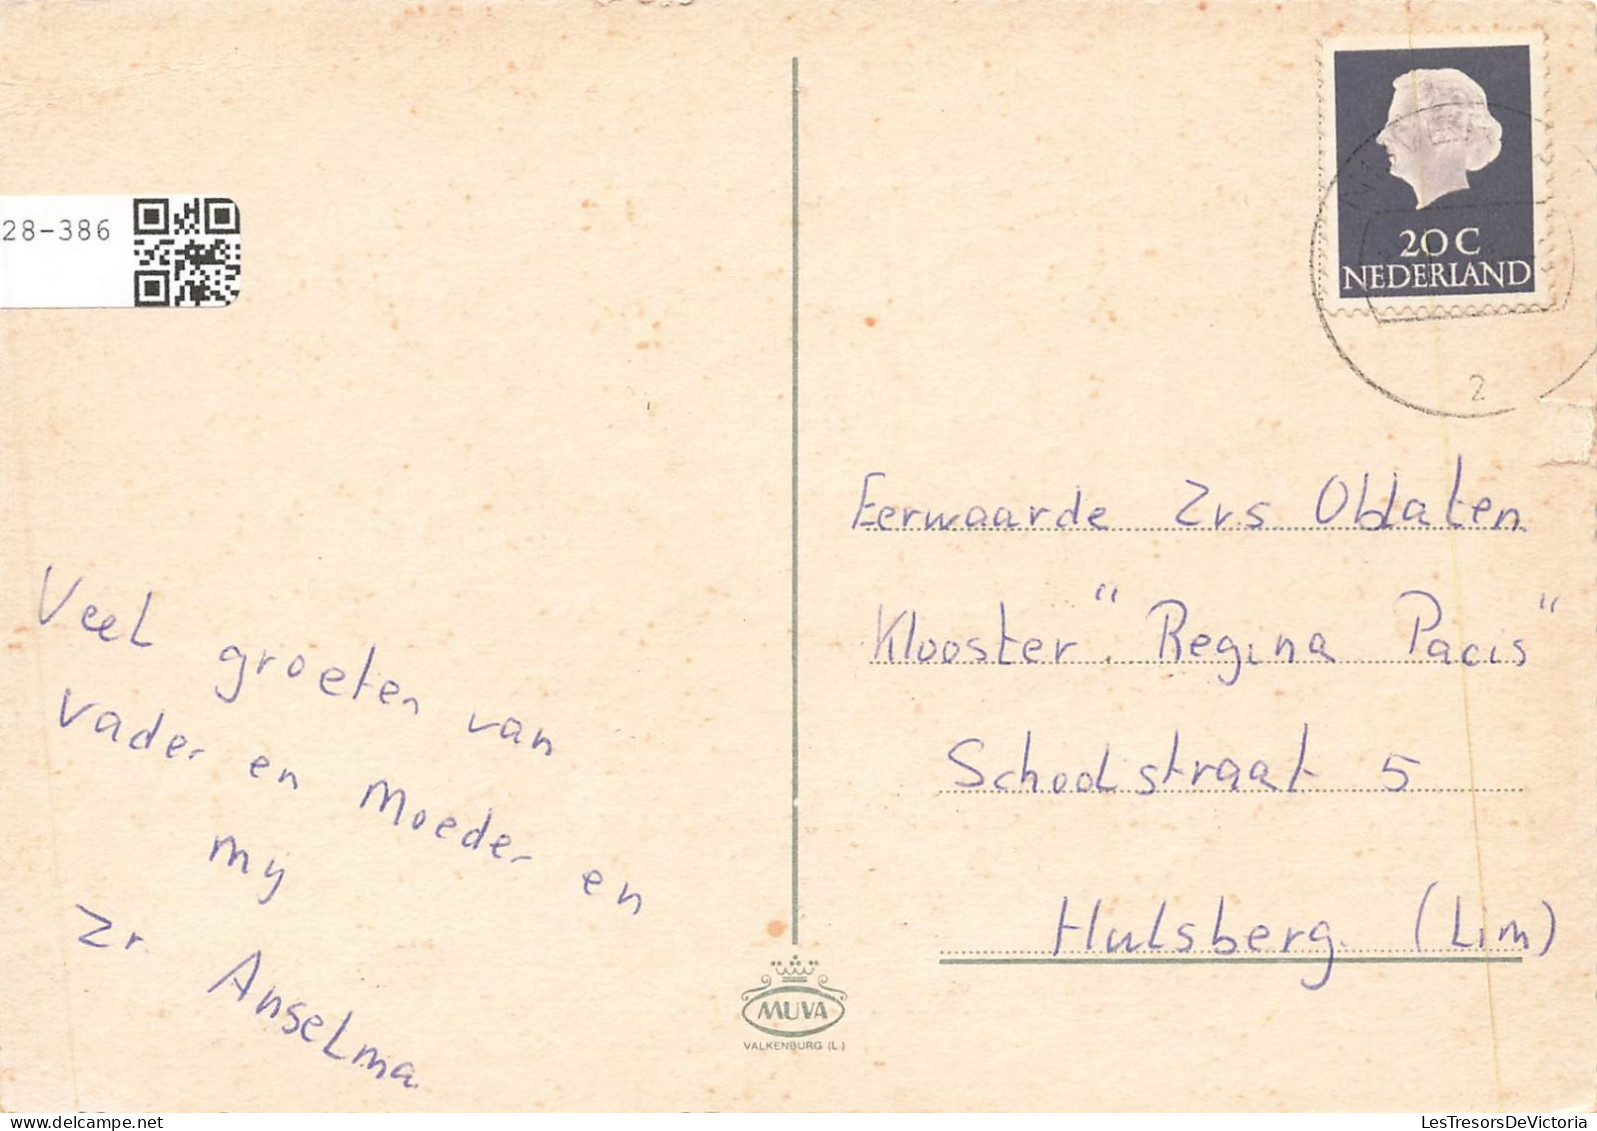 28-386
20 C
NEDERLAND
2
Veel groeten van
Vader en Moeder en
mij
Zr. Anselma.
Eerwaarde Zrs Oblaten
Klooster "Regina Pacis"
Schoolstraat 5
Hulsberg. (Lim)
MUVA
VALKENBURG (L.)
LesTresorsDeVictoria